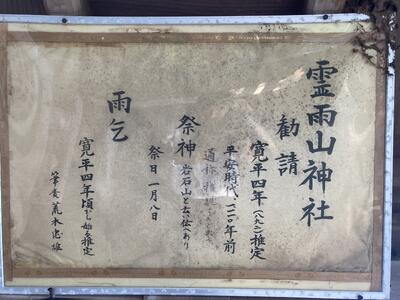 霊雨山神社
勧請
寛平四年(八九二)推定
平安時代、一一二〇年前
通称雅
祭神
岩石山と云い伝へあり
祭日 一月八日
雨乞
寛平四年頃から始る推定
筆者 荒木忠雄